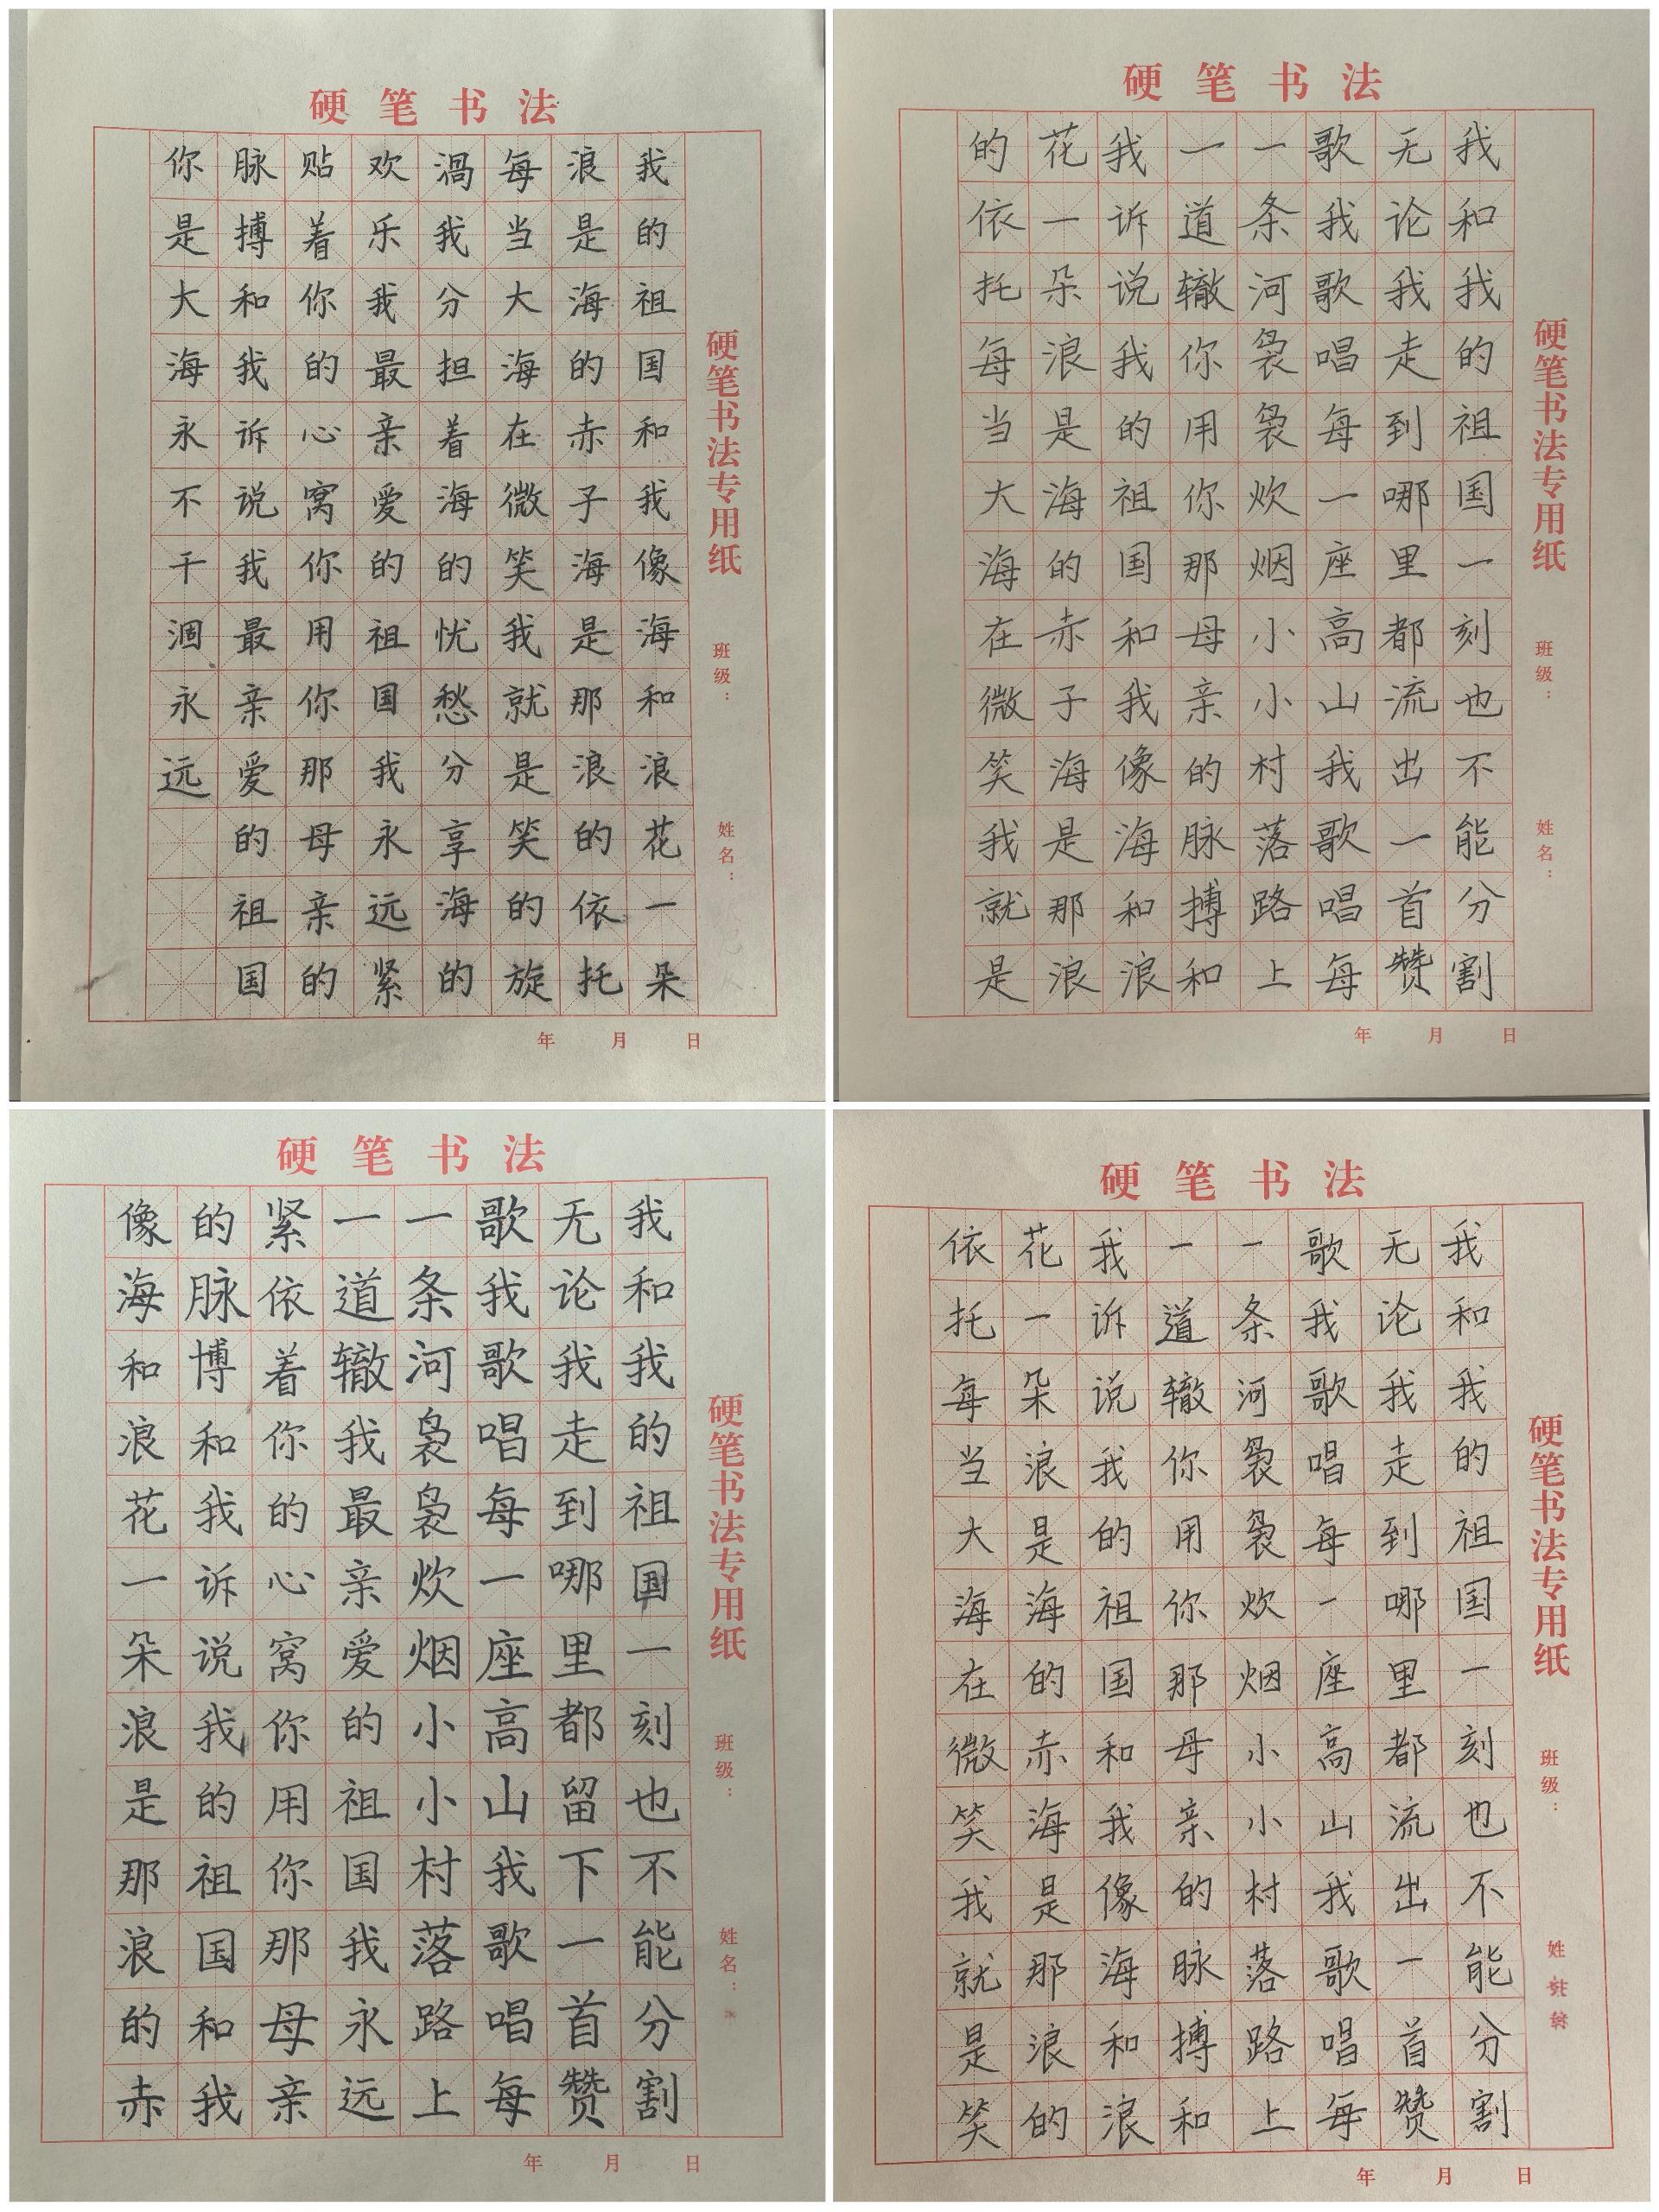 硬笔书法
我的祖国和我像海和浪花一朵
浪是海的赤子海是那浪的依托
每当大海在微笑我就是笑的旋
渦我分担着海的忧愁分享海的
欢乐我最亲爱的祖国我永远紧
贴着你的心窝你用你那母亲的
脉搏和我诉说我最亲爱的祖国
你是大海永不干涸永远
硬笔书法专用纸
班级：
姓名：
年 月 日
硬笔书法
我和我的祖国一刻也不能分割
无论我走到哪里都流出一首赞
歌我歌唱每一座高山我歌唱每
一条河袅袅炊烟小小村落路上
一道辙你用你那母亲的脉搏和
我诉说我的祖国和我像海和浪
花一朵浪是海的赤子海是那浪
的依托每当大海在微笑我就是
硬笔书法专用纸
班级：
姓名：
年 月 日
硬笔书法
我和我的祖国一刻也不能分割
无论我走到哪里都留下一首赞
歌我歌唱每一座高山我歌唱每
一条河袅袅炊烟小小村落路上
一道辙我最亲爱的祖国我永远
紧依着你的心窝你用你那母亲
的脉博和我诉说我的祖国和我
像海和浪花一朵浪是那浪的赤
硬笔书法专用纸
班级：
姓名：
年 月 日
硬笔书法
我和我的祖国一刻也不能分割
无论我走到哪里都流出一首赞
歌我歌唱每一座高山我歌唱每
一条河袅袅炊烟小小村落路上
一道辙你用你那母亲的脉搏和
我诉说我的祖国和我像海和浪
花一朵浪是海的赤海是那浪的
依托每当大海在微笑我就是笑
硬笔书法专用纸
班级：
姓
年 月 日